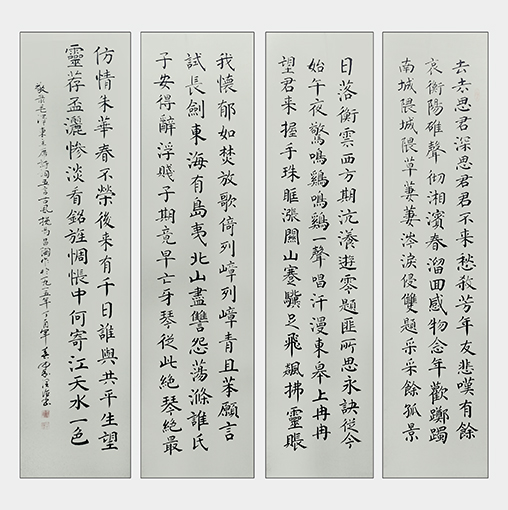 去去思君深思君君不來愁殺芳年友悲嘆有餘
哀衡陽雄聲彻湘濱春溜回感物念年歡躑躅
南城隈城隈草萋萋涔淚侵雙題采采餘孤景
日落衡雲西方期沆瀁遊零題匪所思永訣從今
始午夜驚鳴鷄鳴鷄一聲唱汗漫東皋上冉冉
望君來握手珠眶漲關山蹇驥足飛飆拂靈賬
我懷郁如焚放歌倚列嶂列嶂青且苯願言
試長劍東海有島夷北山盡讐怨蕩滌誰氏
子安得辭浮賤子期竟早亡牙琴從此絕琴絕最
仿情朱華春不榮後來有千日誰與共平生望
靈荐盃灑惨淡看銘旌惆悵中何寄江天水一色
主席诗词五古挽易昌陶